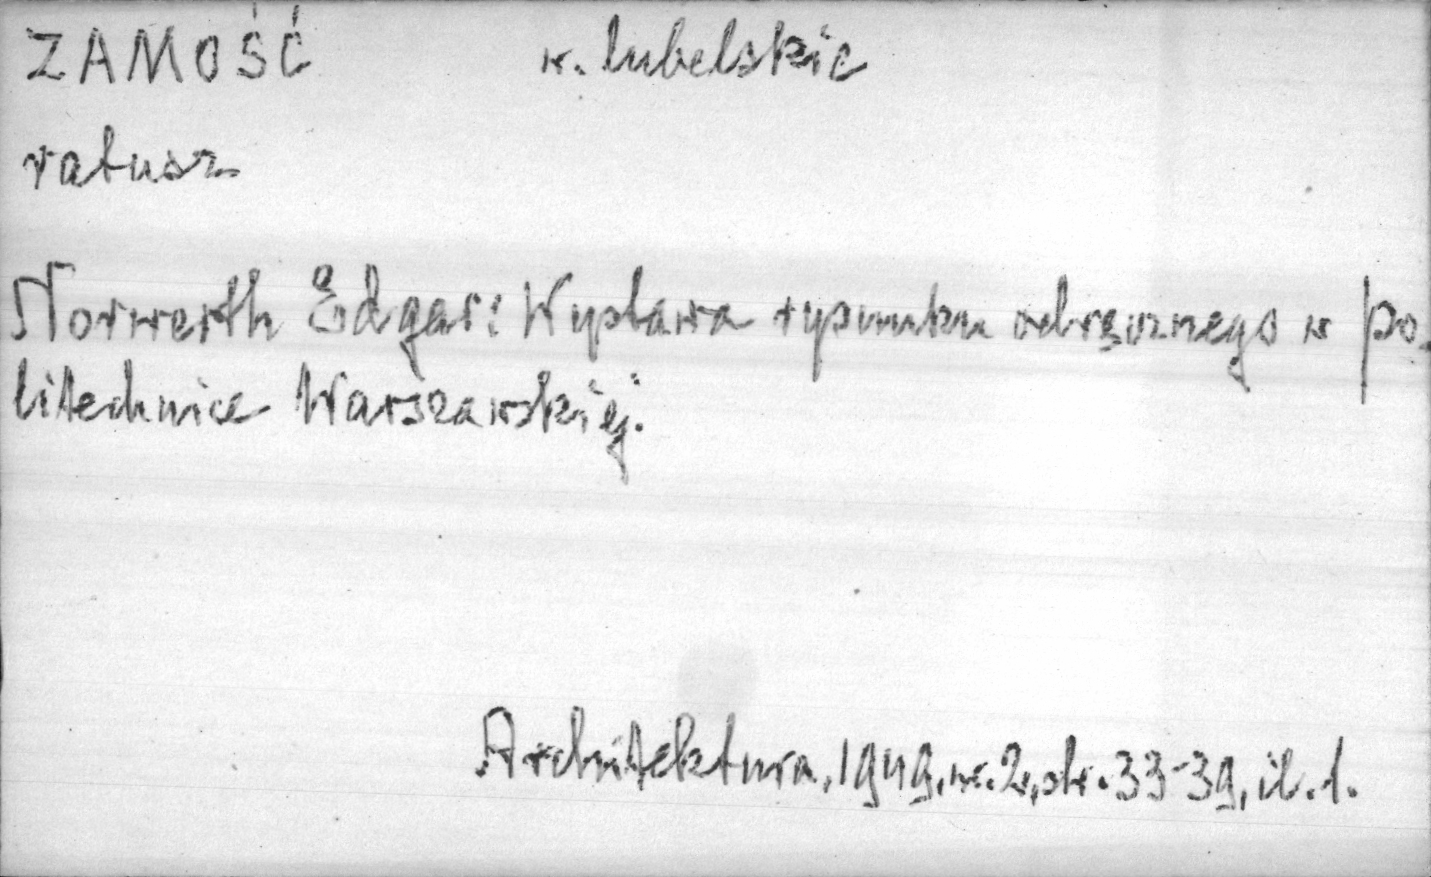 ZAMOŚĆ w. lubelskie
ratusz
Norwerth Edgar: Wystawa rysunku odręcznego w Po-
litechnice Warszawskiej.
Architektura, 1949, nr. 2, str. 33-39, il. 1.